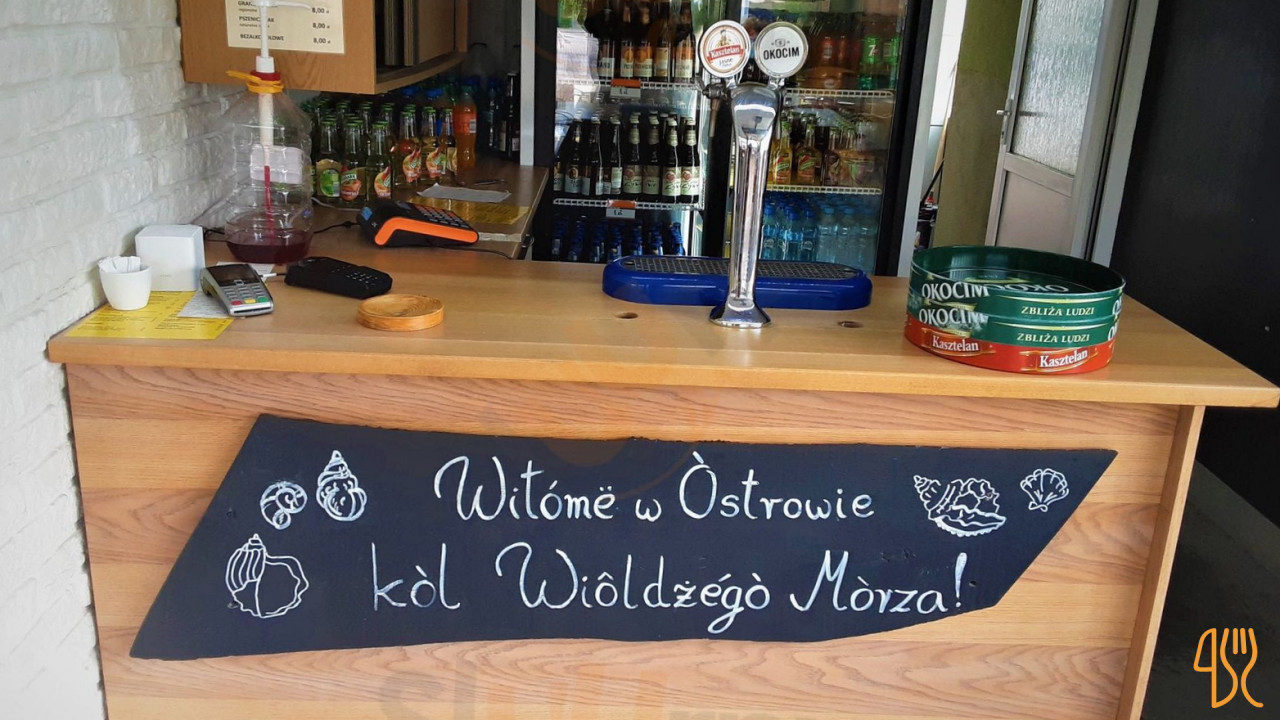 8,00
PSZENIC
8,00 zł
BEZALKO
8,00 zł
Kasztelan
OKOCIM
7
OKOCIM
ZBLIŻA LUDZI
OKOCIM
ZBLIŻA LUDZI
Kasztelan
Kasztelan
Witómë w Òstrowie
kòl Wiôldżégò Mòrza!